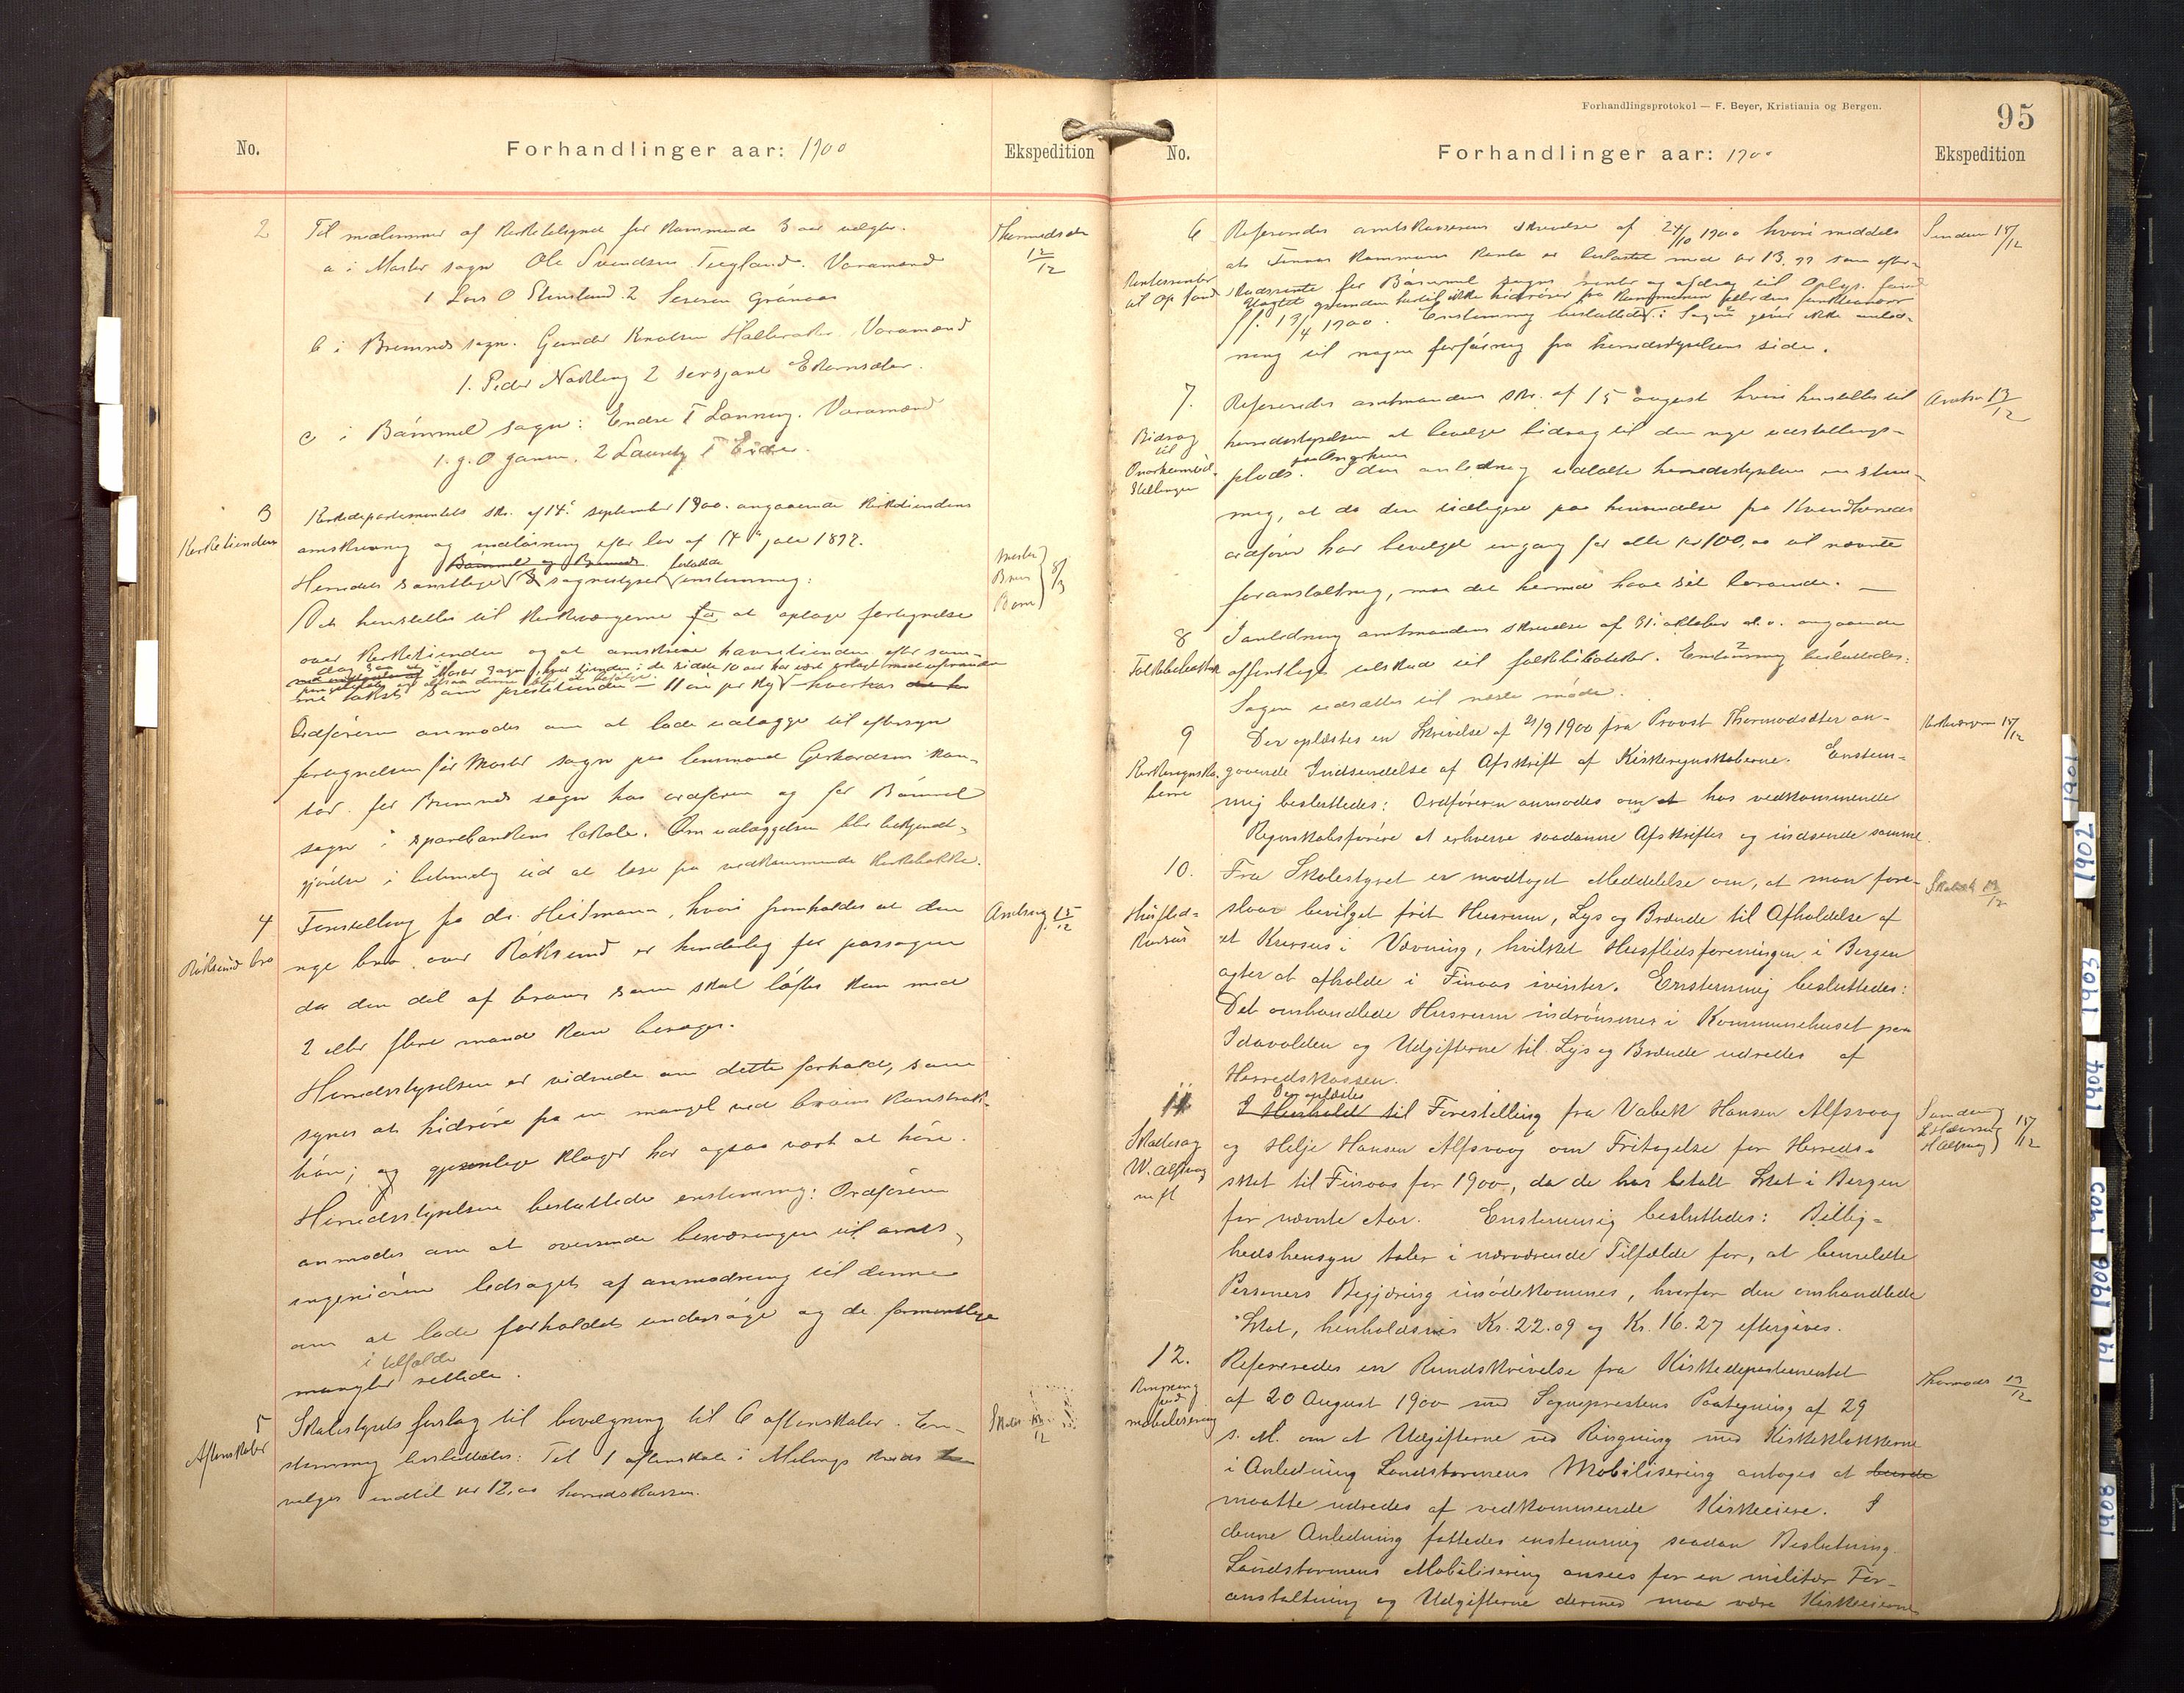 No.
Forhandlinger aar: 1900
Ekspedition
2
Til medlemmer af Kirketilsynet for kommende 3 aar valgtes.
a i Moster sogn Ole Svendsen Teigland. Varamænd
1 Lars O Stensland. 2 Severin Grønaas
b i Bremnes sogn. Gunder Knutsen Halleraker. Varamænd
1. Peder Nødtling 2 sersjant Ekornsæter.
c i Bømmel sogn: Endre T Lønning. Varamænd
1. J. O. Gaasen. 2 Lauritz T Eide.
Thormodsæter
12/12
3
Kirketienden
Kirkedepartementets skr. af 14. september 1900 angaaende Kirketiendens
omskrivning og indløsning efter lov af 14 juli 1892.
Bømmel og Bremnes fattede
Herredets samtlige 3 sognestyrer enstemmig:
Det henstilles til Kirkeværgerne at optage fortegnelse
over Kirketienden og at omskrive havretienden efter sam-
me takst som prestetienden — 11 øre pr kg
Moster
Brem
Bøm
8/3
Ordføreren anmodes om at lade udlægge til eftersyn
fortegnelsen for Moster sogn paa lensmand Gerhardsens kon-
tor. for Bremnes sogn hos ordføreren og for Bømmel
sogn i sparebankens lokale. Om udlæggelsen blir bekjendt-
gjørelse i betimelig tid at læse fra vedkommende Kirkebakke.
4
Røksund bro
Forestilling fra dr. Heitmann, hvori fremholdes at den
nye bro over Røksund er hinderlig for passagen
da den del af broen som skal løftes kun med
2 eller flere mænd kan bevæges.
Herredsstyrelsen er vidende om dette forhold, som
synes at hidrøre fra en mangel ved broens konstruk-
tion; og gjentlige klager har ogsaa vært at høre.
Herredsstyrelsen besluttede enstemmig: Ordføreren
anmodes om at oversende besværingen til amts-
ingeniøren ledsaget af anmodning til denne
om at lade forholdet undersøge og de formentlige
i tilfælde
mangler rettede.
Amtsing 15/12
5
Aftenskoler
Skolestyrets forslag til bevilgning til 6 aftenskoler. En-
stemmig besluttedes: Til 1 aftenskole i Melings kreds be
vilges indtil kr 12,00 herredskassen.
Skolest 13/12
Forhandlingsprotokol — F. Beyer, Kristiania og Bergen.
95
No.
Forhandlinger aar: 1900
Ekspedition
6
Refereredes amtskassererens skrivelse af 24/10 1900 hvori meddeles
at Finnaas kommunes konto er belastet med kr 13.97 som efter-
skudsrente for Bømmel sogns renter og afdrag til Oplys. fond
Uagtet grunden hertil ikke hidrører fra kommunen eller dens funktionærer
pr. 13/4 1900. Enstemmig besluttedes: Sagen giver ikke anled-
ning til nogen forføining fra herredsstyrelsens side.
Renterenter
til Op. fond
Sunden 15/12
7.
Bidrag
til
Onarheimsud-
stillingen
Refereredes amtmandens skr. af 15 august hvori henstilles til
herredsstyrelsen at bevilge bidrag til den nye udstillings-
paa Onarheim
plads. I den anledning udtalte herredsstyrelsen enstem-
mig, at da den tidligere paa henvendelse fra Kvindherreds
ordfører har bevilget engang for alle kr 100,00 til nævnte
foranstaltning, maa det hermed have sit forblivende. —
Amtm 13/12
8
Folkebibliothek
I anledning amtmandens skrivelse af 31. oktober d. a. angaaende
offentlige tilskud til folkebiblioteker. Enstemmig besluttedes:
Sagen udsættes til næste møde.
9
Kirkeregnska-
berne
Der oplæstes en Skrivelse af 21/9 1900 fra Provst Thormodsæter an-
gaaende Indsendelse af Afskrift af Kirkeregnskaberne. Enstem-
mig besluttedes: Ordføreren anmodes om at hos vedkommende
Regnskabsførere at erhverve saadanne Afskrifter og indsende samme.
Kirkeværgerne 15/12
10.
Husflid-
kursus
Fra Skolestyret er modtaget Meddelelse om, at man fore-
slaar bevilget frit Husrum, Lys og Brænde til Afholdelse af
et Kursus i Vævning, hvilket Husflidsforeningen i Bergen
agter at afholde i Finaas ivinter. Enstemmig besluttedes:
Det omhandlede Husrum indrømmes i Kommunehuset paa
Idavolden og Udgifterne til Lys og Brænde udredes af
Herredskassen.
Skolest 13/12
11
Skattesag
W. Alfsvaag
m fl
Der oplæstes
I Henhold til Forestilling fra Valek Hansen Alfsvaag
og Helje Hansen Alfsvaag om Fritagelse for Herreds-
skat til Finaas for 1900, da de har betalt Skat i Bergen
for nævnte Aar. Enstemmig besluttedes: Billig-
hedshensyn taler i nærværende Tilfælde for, at bemeldte
Personers Begjæring imødekommes, hvorfor den omhandlede
Skat, henholdsvis Kr. 22.09 og Kr. 16.27 eftergives.
Sunden
15/12
12.
Ringning
ved
mobilisering
Refereredes en Rundskrivelse fra Kirkedepartementet
af 20 August 1900 med Sogneprestens Paategning af 29
s. M. om at Udgifterne ved Ringning med Kirkeklokkerne
i Anledning Landstormens Mobilisering antages at burde
maatte udredes af vedkommende Kirkeeiere. I
denne Anledning fattedes enstemmig saadan Beslutning.
Landstormens Mobilisering ansees for en militær For-
anstaltning og Udgifterne dermed maa være Kirkeeierne
Thormods 13/12
1901
1902
1903
1904
1905
1906
1908